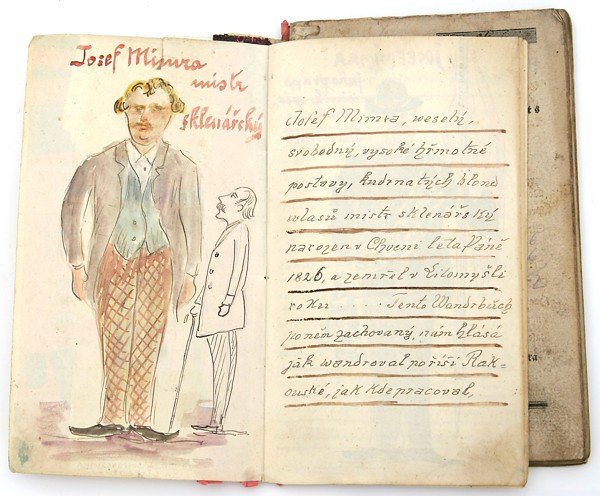 Josef Mimra
mistr
sklenářský
Josef Mimra, veselý,
svobodný, vysoké hřmotné
postavy, kudrnatých blond
vlasů mistr sklenářský
narozen v Chocni léta Páně
1826, a zemřel v Litomyšli
roku ..... Tento Wandrbuch
po něm zachovaný, nám hlásá
jak wandroval po říši Rak-
ouské, jak kde pracoval,